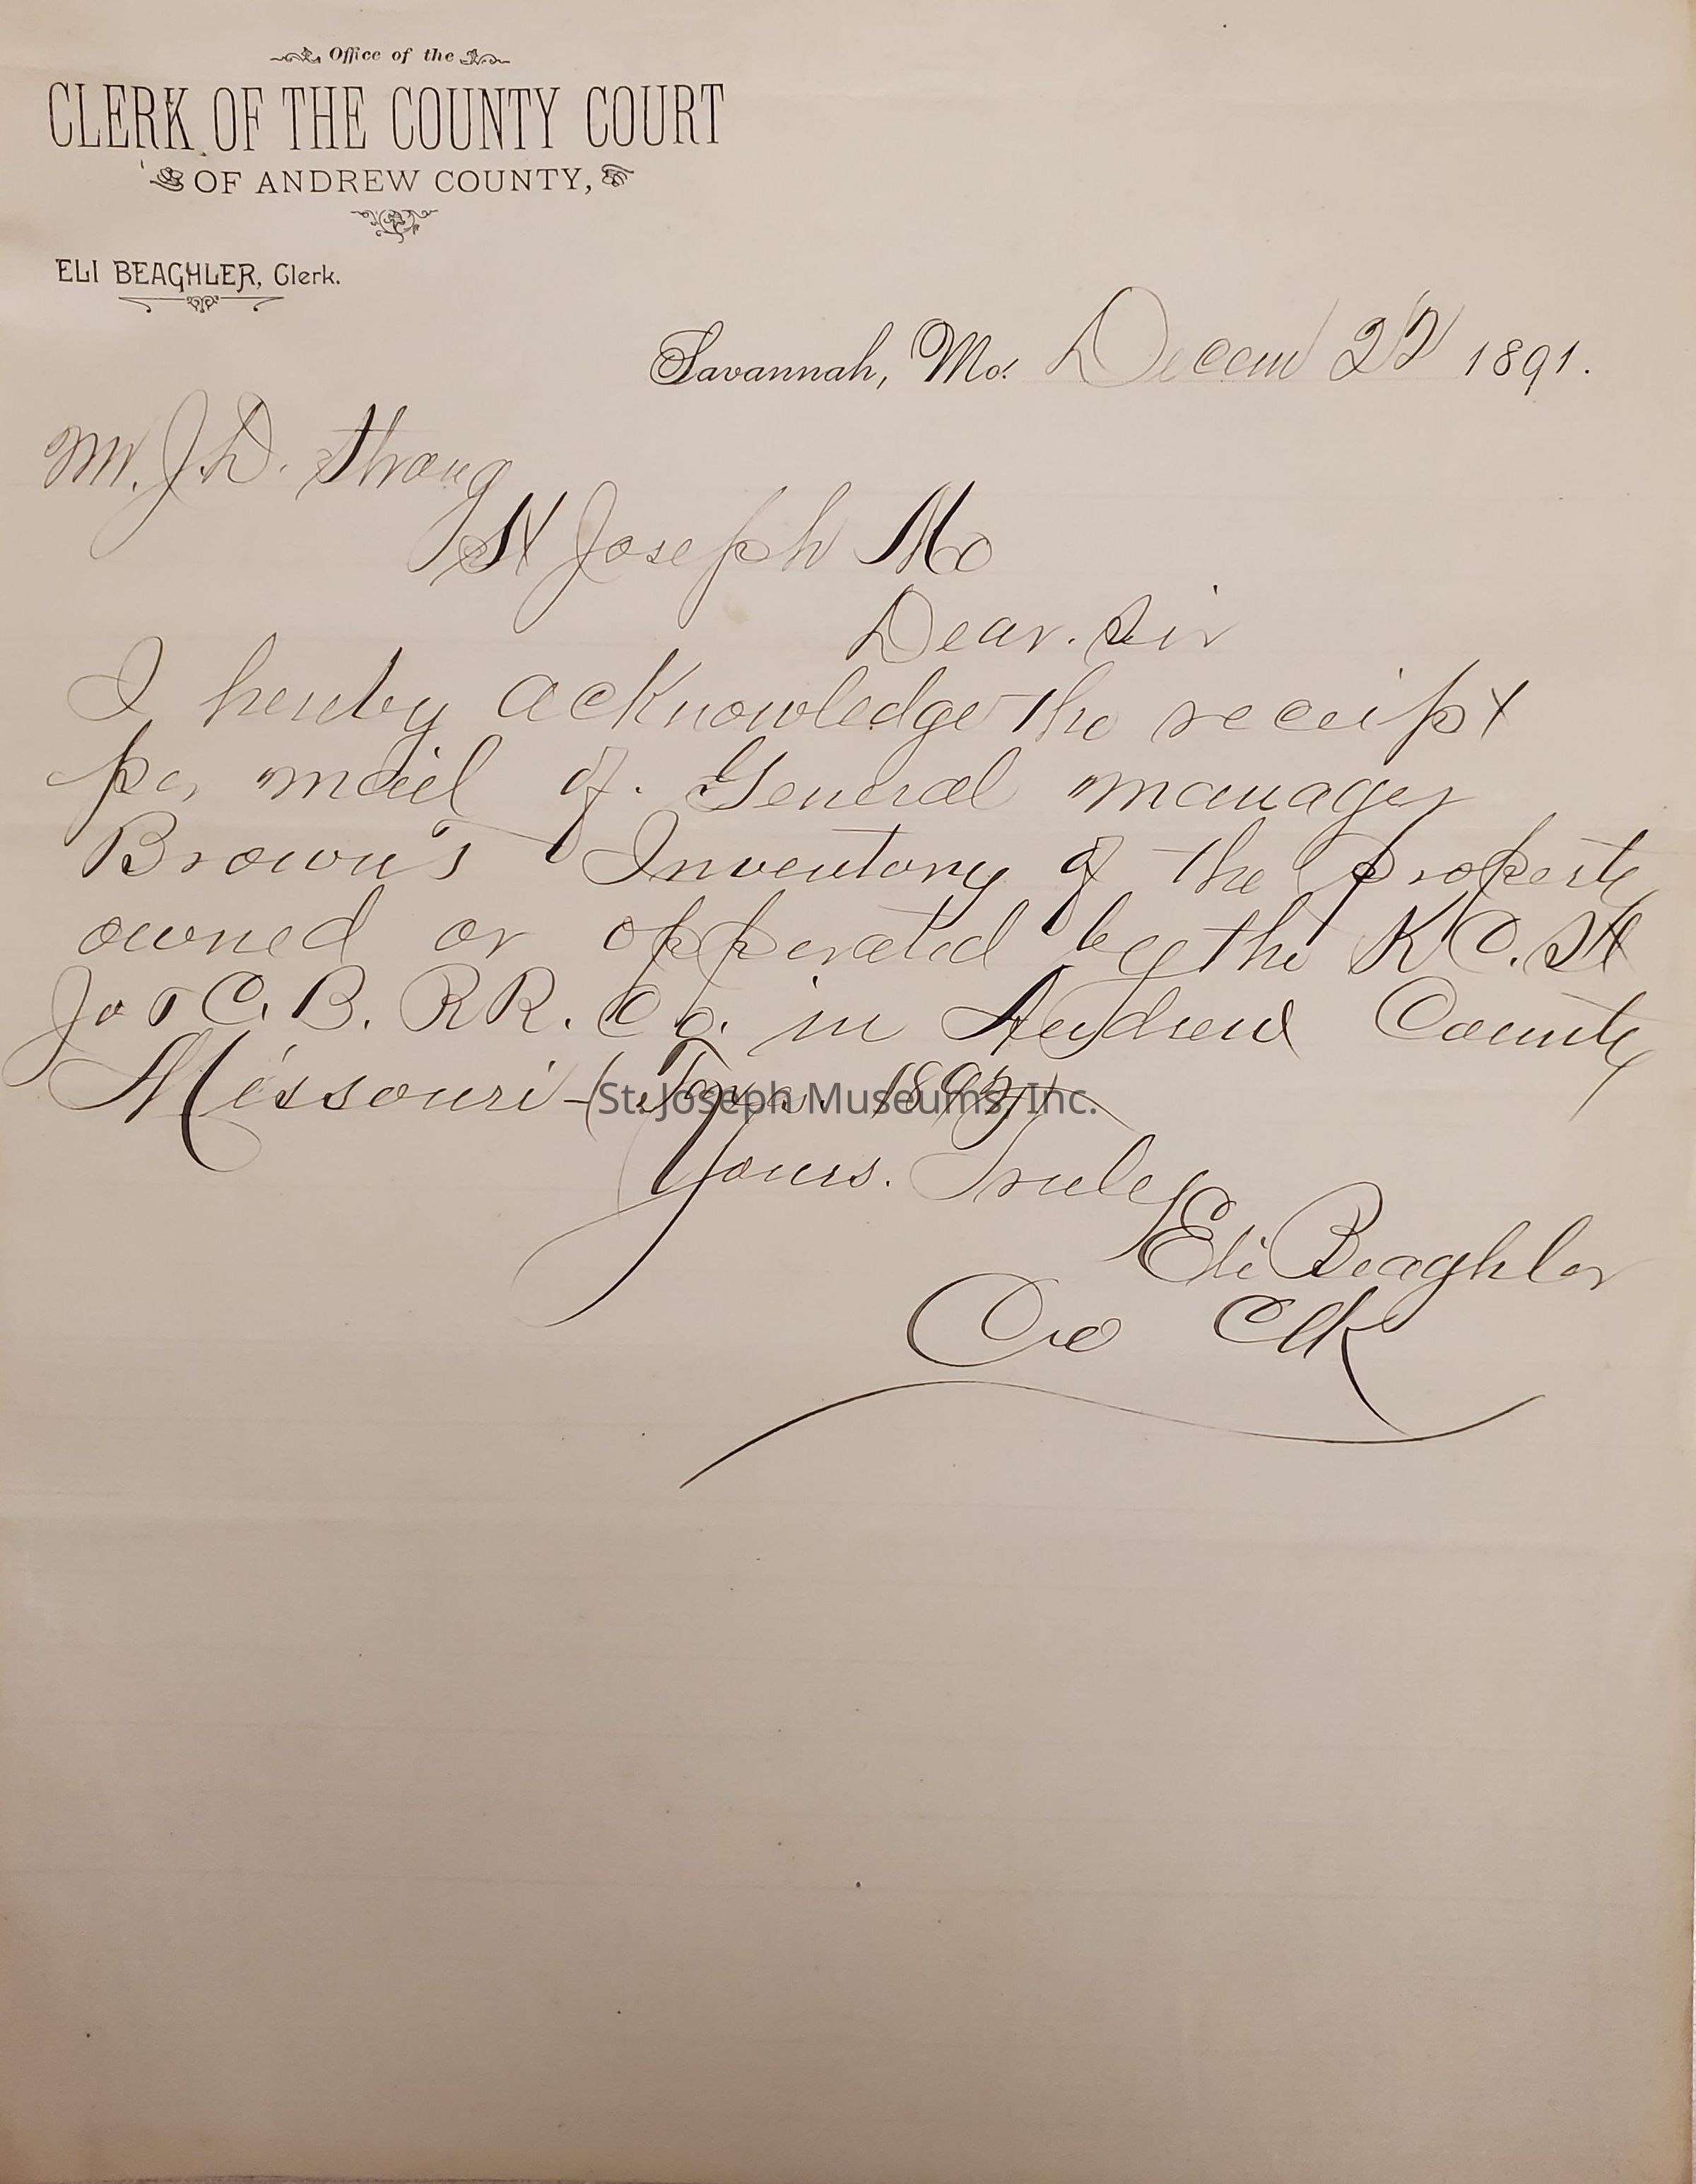 Office of the
CLERK OF THE COUNTY COURT
OF ANDREW COUNTY,
ELI BEAGHLER, Clerk.
Savannah, Mo. Decem 1891.
Mr. J.D. Strong
St Joseph Mo
Dear. Sir
I hereby acknowledge the receipt
per mail of. General manager
Brown's Inventory of the property
owned or opperated by the K C. St
Jo & C. B. RR. Co. in Andrew County
Missouri - (
St. Joseph Museums, Inc.
Yours. Truly
Eli Beaghler
Co Clk